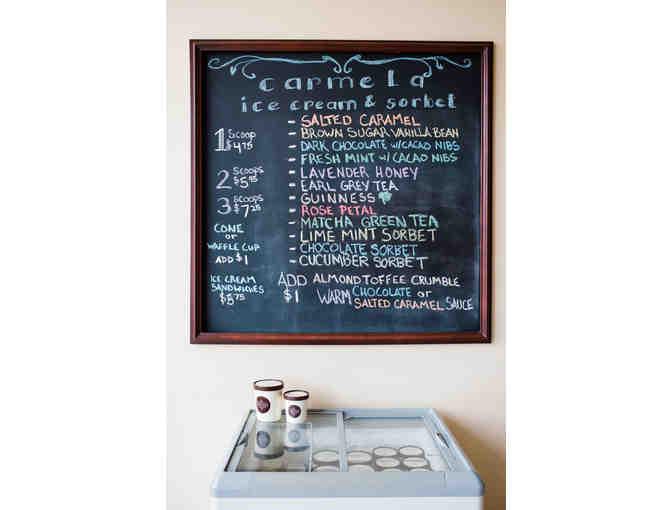 carmela
ice cream & sorbet
- SALTED CARAMEL
- BROWN SUGAR VANILLA BEAN
- DARK CHOCOLATE w/CACAO NIBS
- FRESH MINT w/ CACAO NIBS
- LAVENDER HONEY
- EARL GREY TEA
- GUINNESS
- ROSE PETAL
- MATCHA GREEN TEA
- LIME MINT SORBET
- CHOCOLATE SORBET
- CUCUMBER SORBET
1 SCOOP
$4.75
2 SCOOPS
3 SCOOPS
$7.25
CONE
or
WAFFLE CUP
ADD $1
ICE CREAM
SANDWICHES
ADD ALMOND TOFFEE CRUMBLE
$1 WARM CHOCOLATE or
SALTED CARAMEL SAUCE